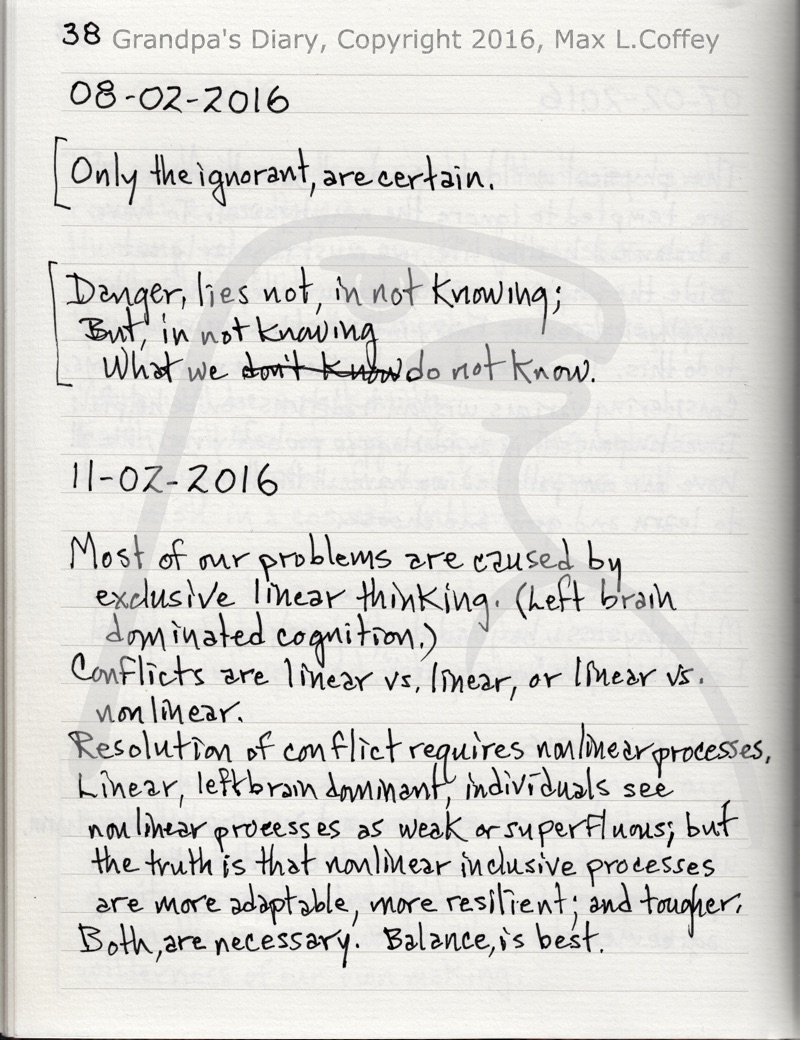 38 Grandpa's Diary, Copyright 2016, Max L.Coffey
08-02-2016
Only the ignorant, are certain.
Danger, lies not, in not knowing;
But, in not knowing
What we ~~don't know~~ do not know.
11-02-2016
Most of our problems are caused by
exclusive linear thinking. (Left brain
dominated cognition.)
Conflicts are linear vs. linear, or linear vs.
nonlinear.
Resolution of conflict requires nonlinear processes.
Linear, left brain dominant, individuals see
nonlinear processes as weak or superfluous; but
the truth is that nonlinear inclusive processes
are more adaptable, more resilient; and tougher.
Both, are necessary. Balance, is best.